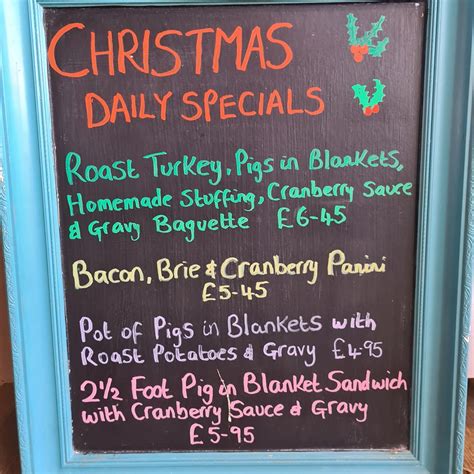 CHRISTMAS
DAILY SPECIALS
Roast Turkey, Pigs in Blankets,
Homemade Stuffing, Cranberry Sauce
& Gravy Baguette £6-45
Bacon, Brie & Cranberry Panini
£5-45
Pot of Pigs in Blankets with
Roast Potatoes & Gravy £4.95
2½ Foot Pig in Blanket Sandwich
with Cranberry Sauce & Gravy
£5-95